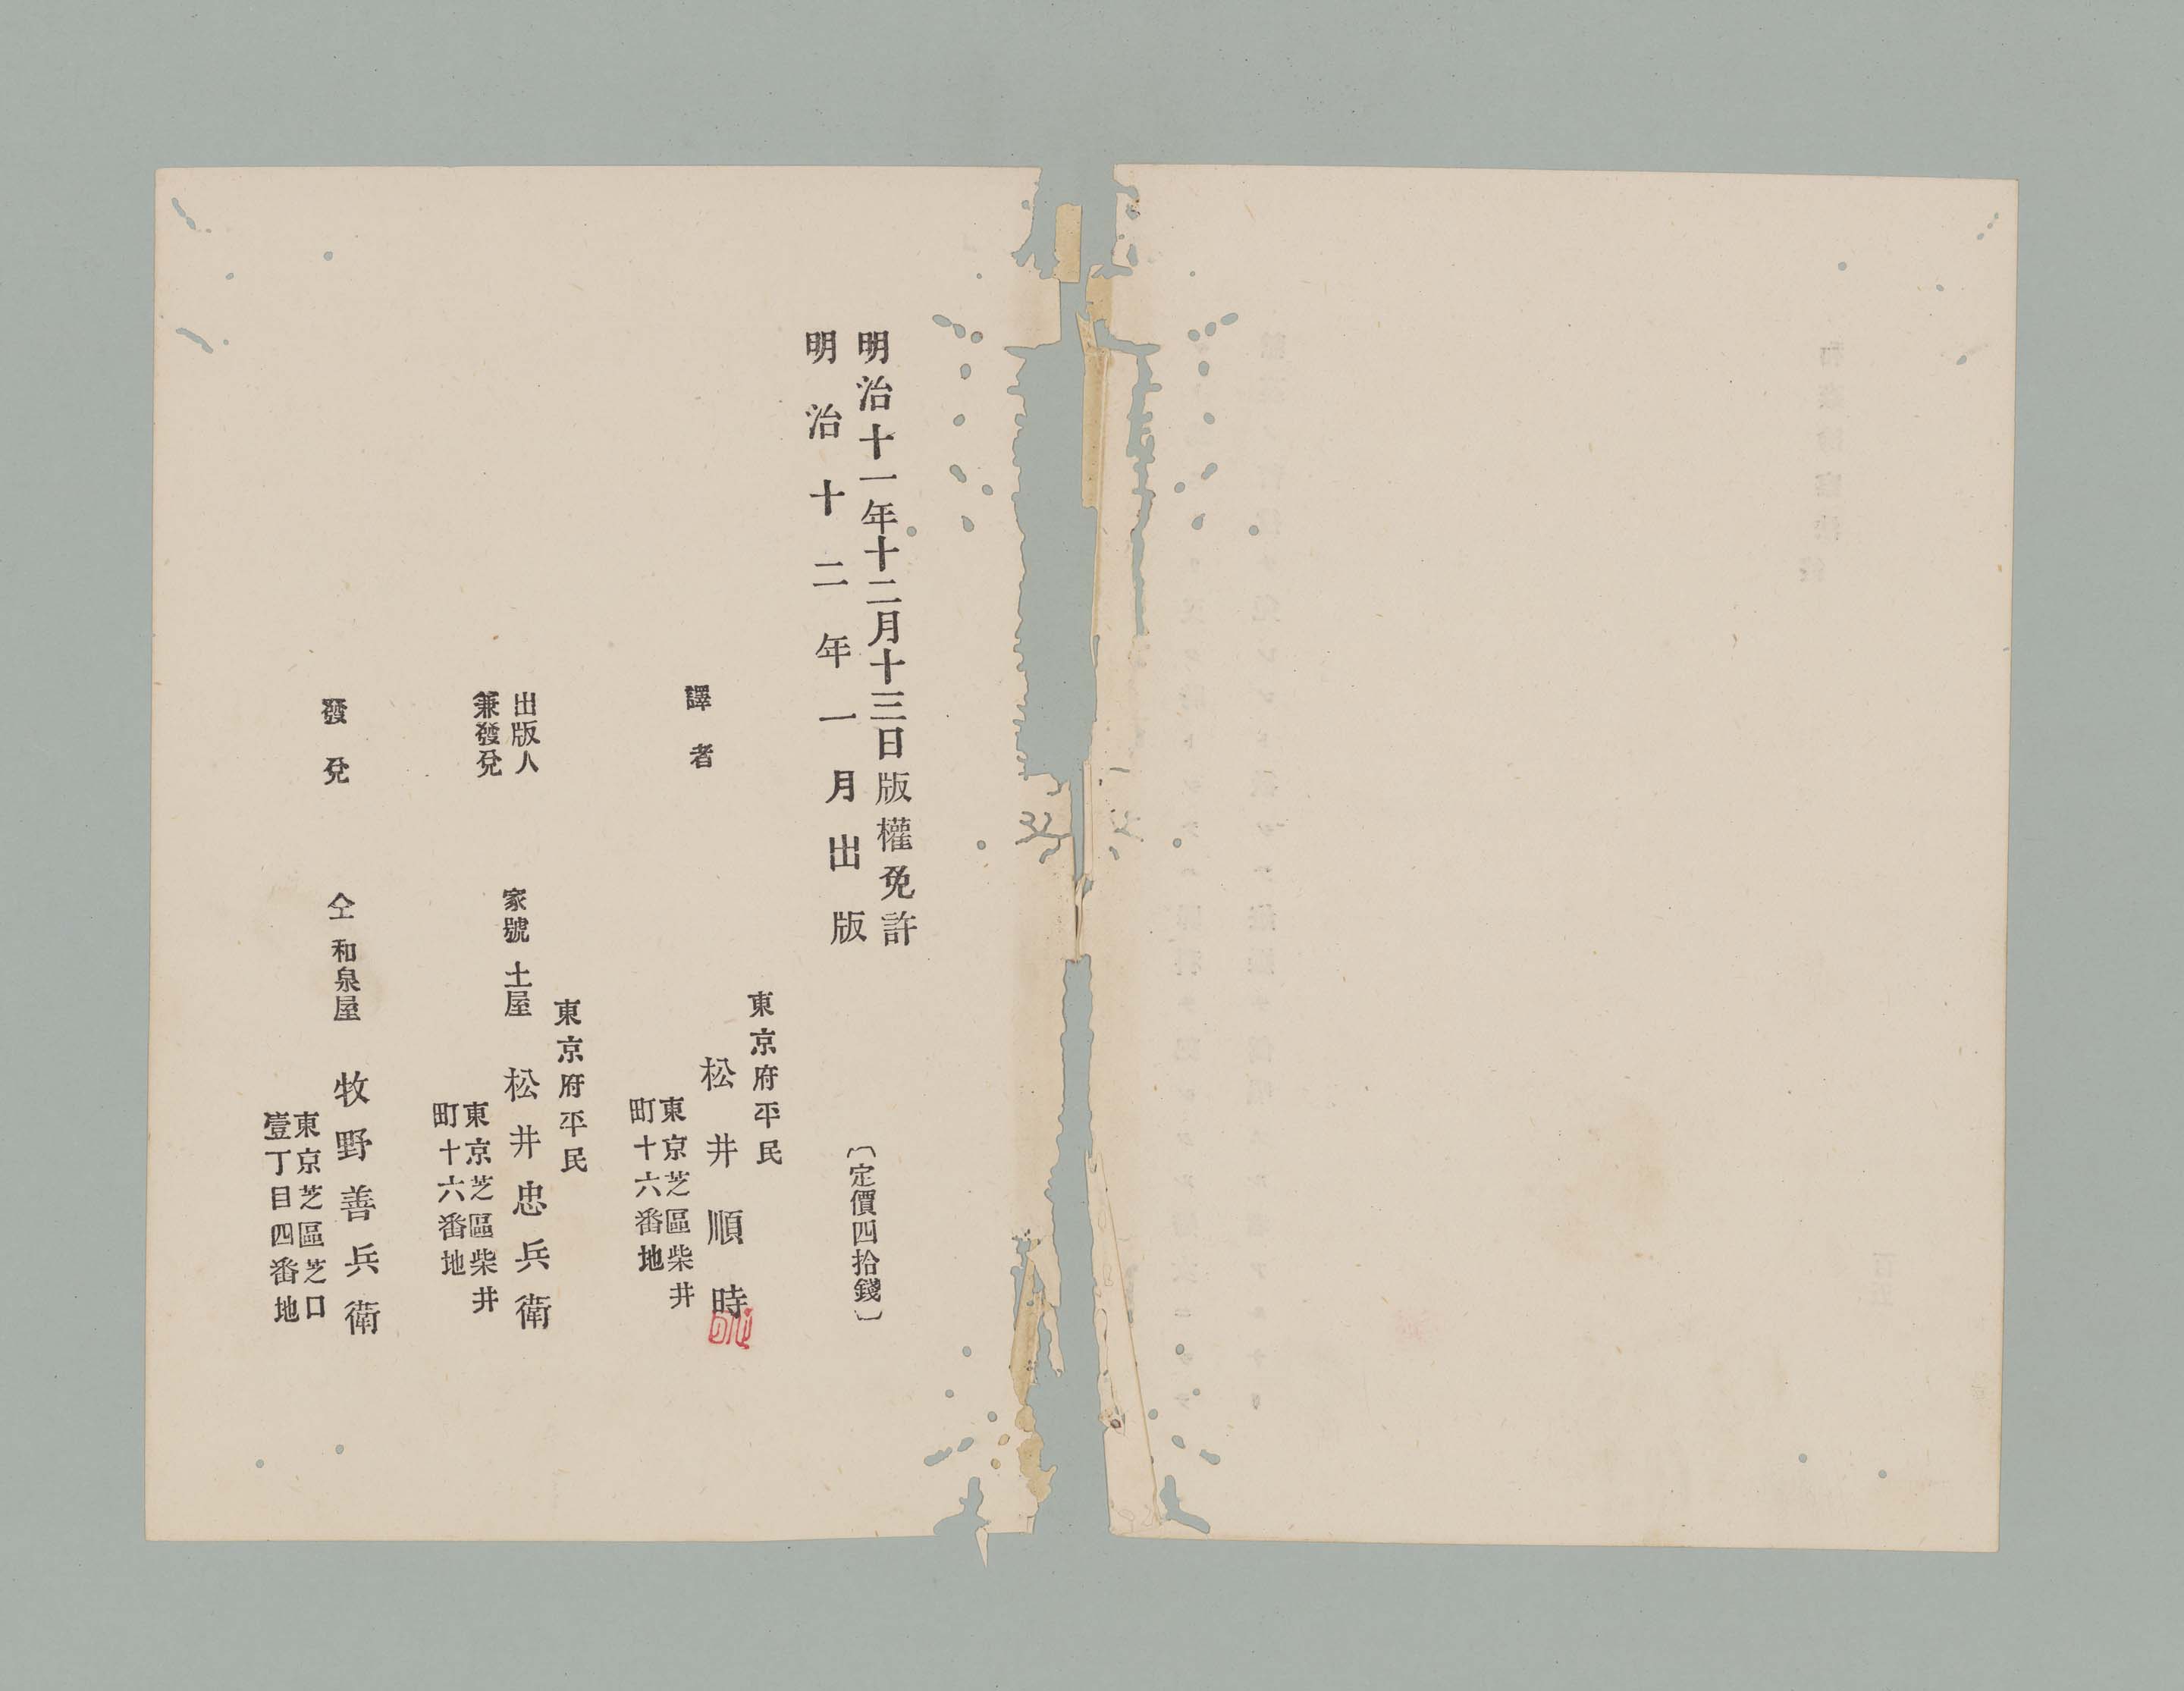 明治十一年十二月十三日版權免許
明治十二年一月出版
〔定價四拾錢〕
譯者
東京府平民
松井順時
東京芝區柴井
町十六番地
出版人
兼發兌
東京府平民
家號 土屋 松井忠兵衛
東京芝區柴井
町十六番地
發兌
仝 和泉屋 牧野善兵衛
東京芝區芝口
壹丁目四番地